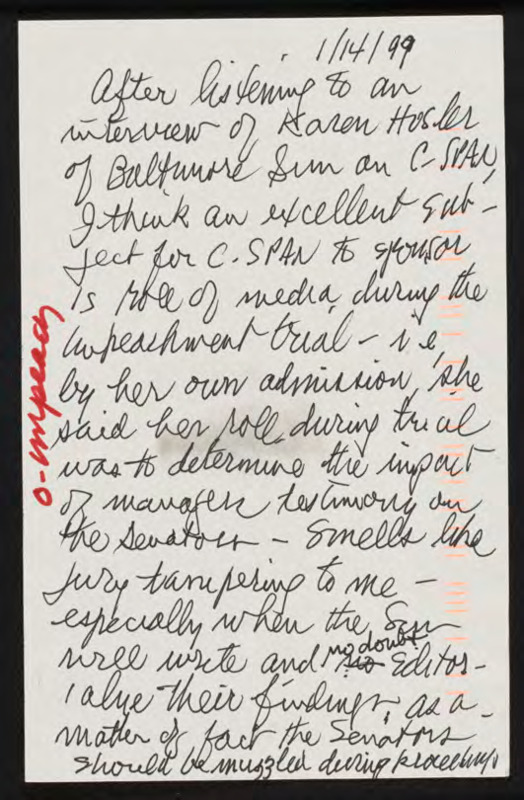 1/14/99
After listening to an
interview of Karen Hosler
of Baltimore Sun on C-SPAN,
I think an excellent sub-
ject for C-SPAN to sponsor
is role of media during the
impeachment trial - i.e,
by her own admission, she
said her roll during trial
was to determine the impact
of managers testimony on
the Senators - Smells like
jury tampering to me -
especially when the Sun
will write and no doubt Editor-
ialize their findings, as a
matter of fact the Senators
should be muzzled during proceedings
O-Impeach